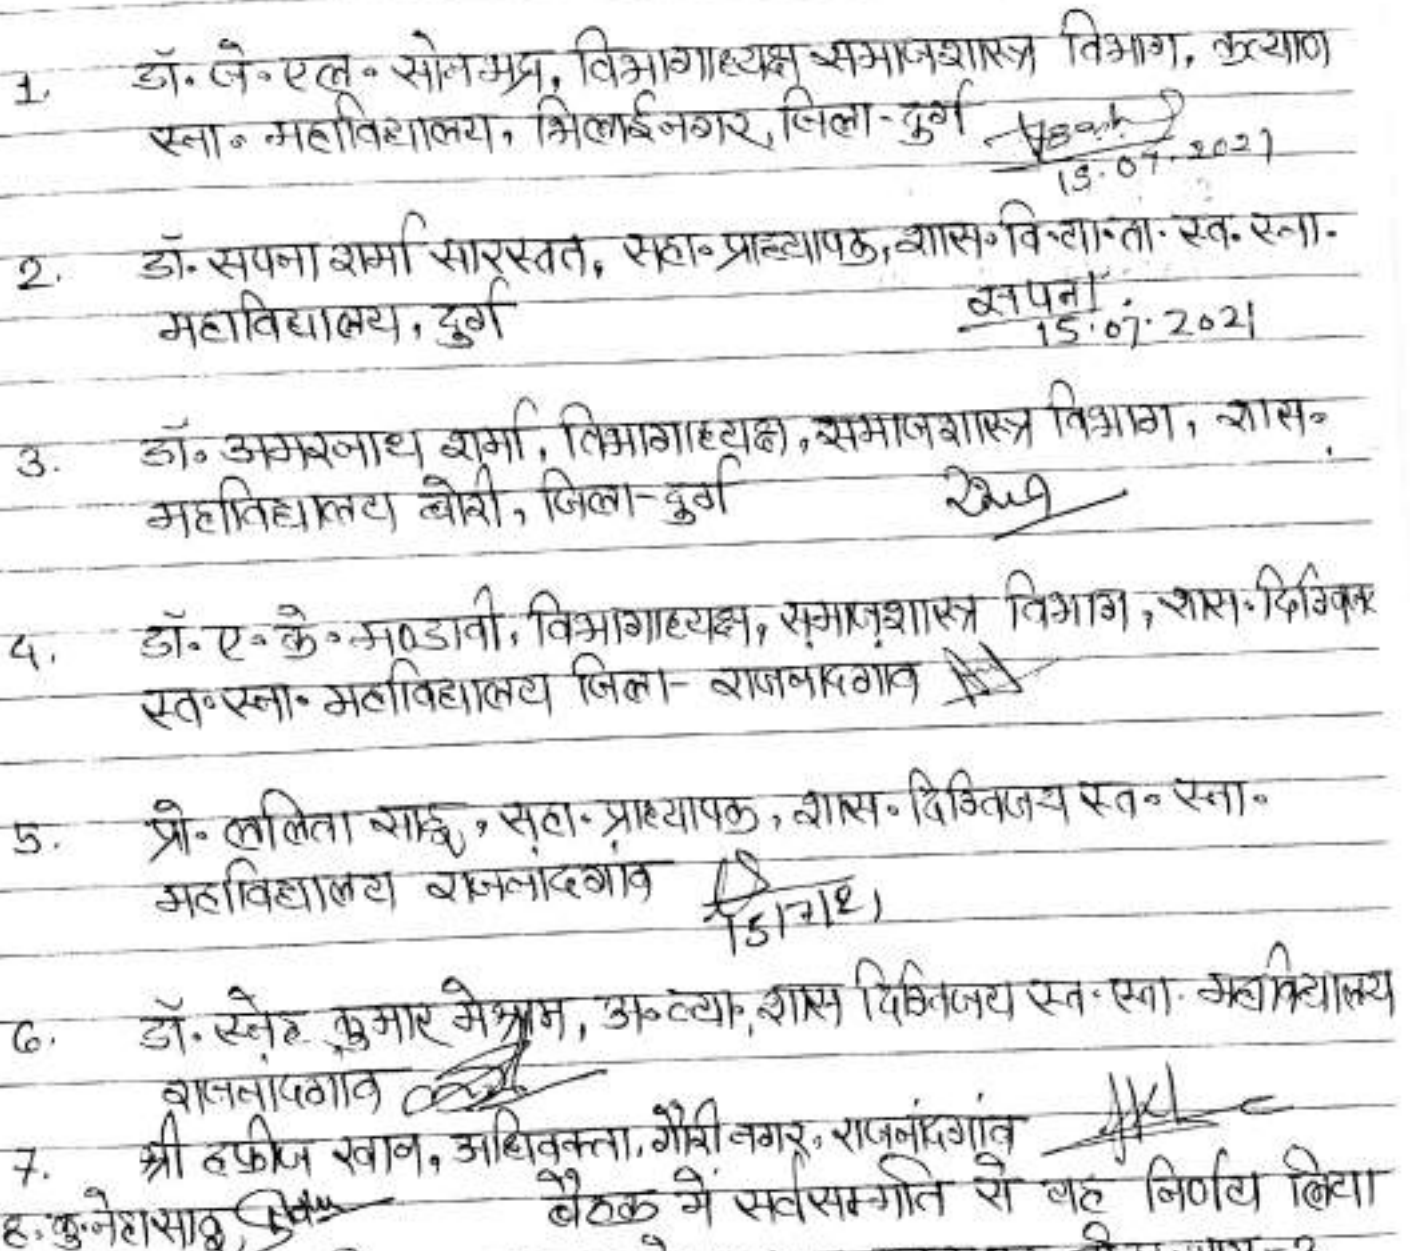 1. डॉ. जे. एल. सोनभद्र, विभागाध्यक्ष समाजशास्त्र विभाग, कल्याण
स्ना. महाविद्यालय, भिलाईनगर, जिला-दुर्ग
15.07.2021
2. डॉ. सपना शर्मा सारस्वत, सहा. प्राध्यापक, शास. वि. या. ता. स्व. स्ना.
महाविद्यालय, दुर्ग सपना
15.07.2021
3. डॉ. अमरनाथ शर्मा, विभागाध्यक्ष, समाजशास्त्र विभाग, शास.
महाविद्यालय बोरी, जिला-दुर्ग
4. डॉ. ए. के. मण्डावी, विभागाध्यक्ष, समाजशास्त्र विभाग, शास.
स्व. स्ना. महाविद्यालय जिला- राजनांदगांव
5. प्रो. ललिता साहू, सहा. प्राध्यापक, शास. दिग्विजय स्व. स्ना.
महाविद्यालय राजनांदगांव
15/7/21
6. डॉ. स्नेह कुमार मेश्राम, अ. व्या., शास दिग्विजय स्व. स्ना. महाविद्यालय
राजनांदगांव
7. श्री हफीज खान, अधिवक्ता, गौरी नगर, राजनांदगांव
8. कु. नेहा साहू, बैठक में सर्वसम्मति से यह निर्णय लिया